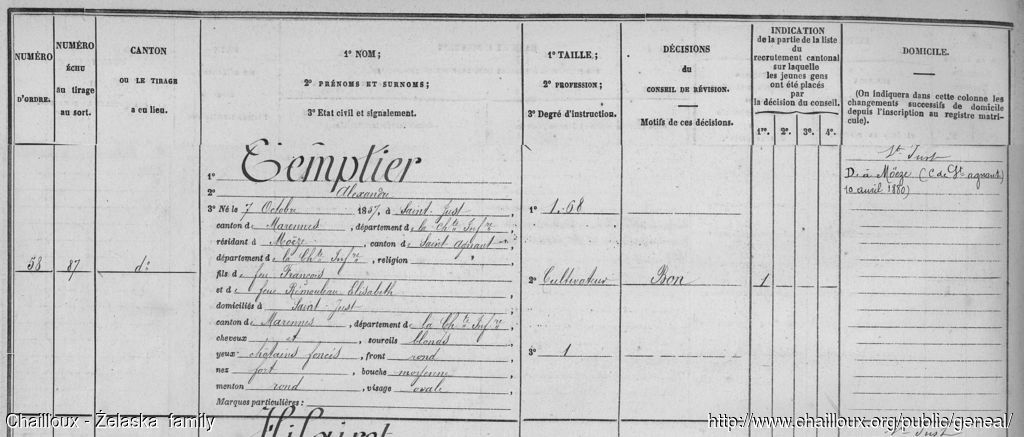 NUMÉRO
D'ORDRE.
NUMÉRO
ÉCHU
au tirage
au sort.
CANTON
OU LE TIRAGE
a eu lieu.
1º NOM;
2º PRÉNOMS ET SURNOMS;
3º Etat civil et signalement.
1º TAILLE;
2º PROFESSION;
3º Degré d'instruction.
DÉCISIONS
du
CONSEIL DE RÉVISION.
Motifs de ces décisions.
INDICATION
de la partie de la liste
du
recrutement cantonal
sur laquelle
les jeunes gens
ont été placés
par
la décision du conseil.
1re. 2e. 3e. 4e.
DOMICILE.
(On indiquera dans cette colonne les
changements successifs de domicile
depuis l'inscription au registre matri-
cule).
58
87
dº
1º Templier
2º Alexandre
3º Né le 7 Octobre 1857, à Saint-Just,
canton de Marennes, département de la Chte Infre
résidant à Moëze, canton de Saint Agnant
département de la Chte Infre, religion "
fils de feu François
et de feue Rémouleau Elisabeth
domiciliés à Saint-Just
canton de Marennes, département de la Chte Infre
cheveux et sourcils blonds
yeux châtains foncés, front rond
nez fort, bouche moyenne
menton rond, visage ovale
Marques particulières:
1º 1.68
2º Cultivateur
3º 1
Bon
1
St Just
D. à Möeze (C de St agnant)
10 avril 1880)
Hilairet
St Just
Chailloux - Żelaska family
http://www.chailloux.org/public/geneal/